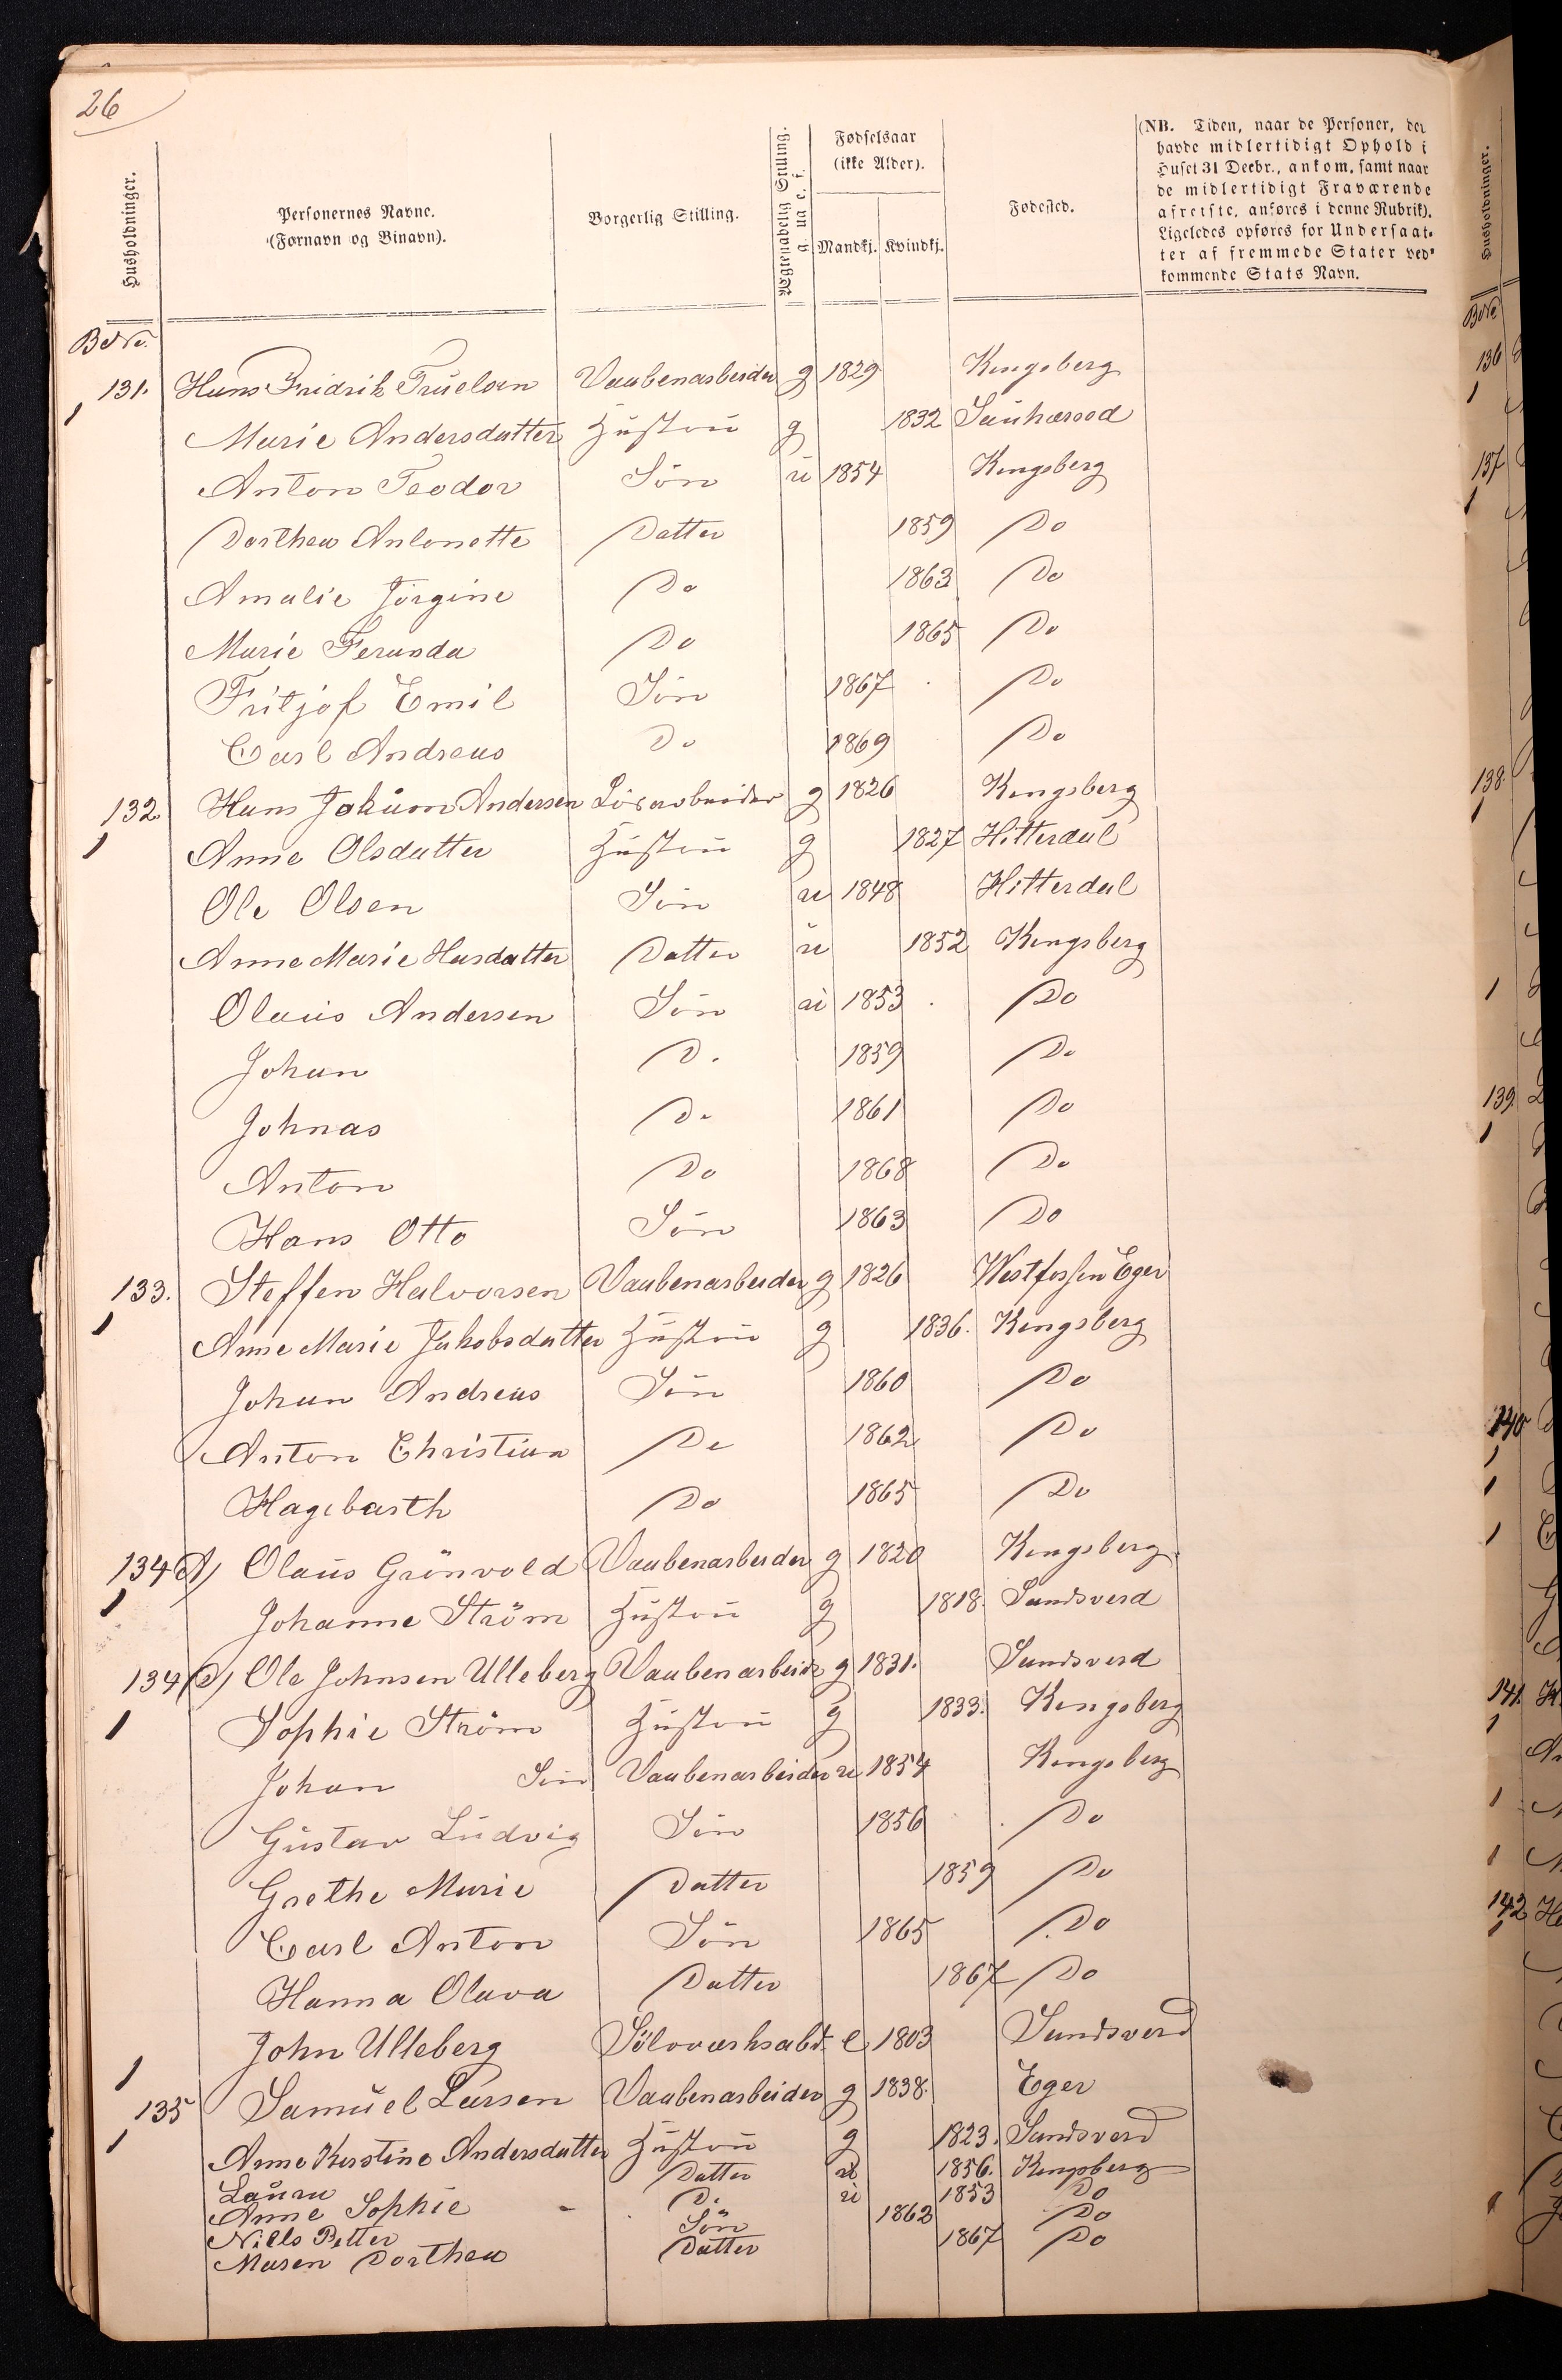 26
Husholdninger.
Personernes Navne.
(Fornavn og Binavn).
Borgerlig Stilling.
Ægteskabelig Stilling.
Fødselsaar
(ikke Alder).
Mandkj. Kvindkj.
Fødested.
(NB. Tiden, naar de Personer, der
havde midlertidigt Ophold i
Huset 31 Decbr., ankom, samt naar
de midlertidigt Fraværende
afreiste, anføres i denne Rubrik).
Ligeledes opføres for Undersaat-
ter af fremmede Stater ved-
kommende Stats Navn.
131. Hans Fridrik Truelsen Vaabenarbeider g 1829 Kongsberg
1 Marie Andersdatter Hustru g 1832 Sauherood
Anton Teodor Søn u 1854 Kongsberg
Dorthea Antonette Datter 1859 Do
Amalie Jørgine Do 1863 Do
Marie Feranda Do 1865 Do
Fritjof Emil Søn 1867 Do
Carl Andreas Do 1869 Do
132. Hans Jokum Andersen Løsarbeider g 1826 Kongsberg
1 Anne Olsdatter Hustru g 1827 Hitterdal
Ole Olsen Søn u 1848 Hitterdal
Anne Marie Hasdatter Datter u 1852 Kongsberg
Olaus Andersen Søn u 1853 Do
Johan Do 1859 Do
Johnas Do 1861 Do
Anton Do 1868 Do
Hans Otto Søn 1863 Do
133. Steffen Halvorsen Vaabenarbeider g 1826 Westfossen Eger
1 Anne Marie Jakobsdatter Hustru g 1836. Kongsberg
Johan Andreas Søn 1860 Do
Anton Christian Do 1862 Do
Hagebarth Do 1865 Do
134 A) Olaus Grönvold Vaabenarbeider g 1820 Kongsberg
1 Johanne Ström Hustru g 1818. Sandsverd
134 Ole Johnsen Ulleberg Vaabenarbeide g 1831. Sandsverd
1 Sophie Ström Hustru g 1833. Kongsberg
Johan Søn Vaabenarbeider u 1854 Kongsberg
Gustav Ludvig Søn 1856 Do
Grethe Marie Datter 1859 Do
Carl Anton Søn 1865 Do
Hanna Olava Datter 1867 Do
1 John Ulleberg Sölvværksabt. e 1803 Sandsverd
135 Samuel Larsen Vaabenarbeider g 1838. Eger
1 Anne Kerstine Andersdatter Hustru g 1823. Sandsverd
Laura Datter u 1856. Kongsberg
Anne Sophie Do u 1853 Do
Nills Petter Søn 1862 Do
Maren Dorthea Datter 1867 Do
Husholdninger.
136
1
137
1
138.
1
1
139.
1
140
1
1
1
141.
1
1
1
142
1